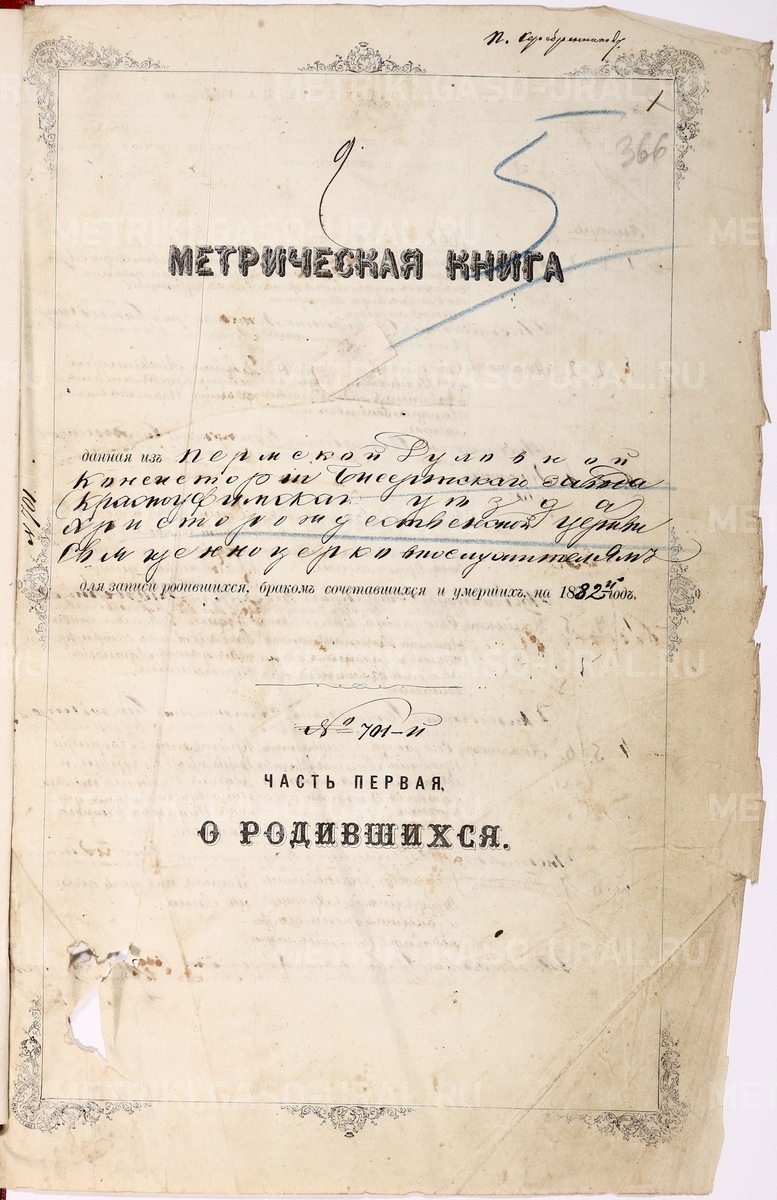 П. Серебренников
1
366
5
МЕТРИЧЕСКАЯ КНИГА
METRIKI.GASU-URAL.RU
данная изъ Пермской Духовной
Консисторіи Бисертскаго завода
Красноуфимскаго уѣзда
Христорождественской церкви
Священноцерковнослужителямъ
для записи родившихся, бракомъ сочетавшихся и умершихъ, на 1882й годъ.
№ 701
№ 701-й
ЧАСТЬ ПЕРВАЯ,
О РОДИВШИХСЯ.